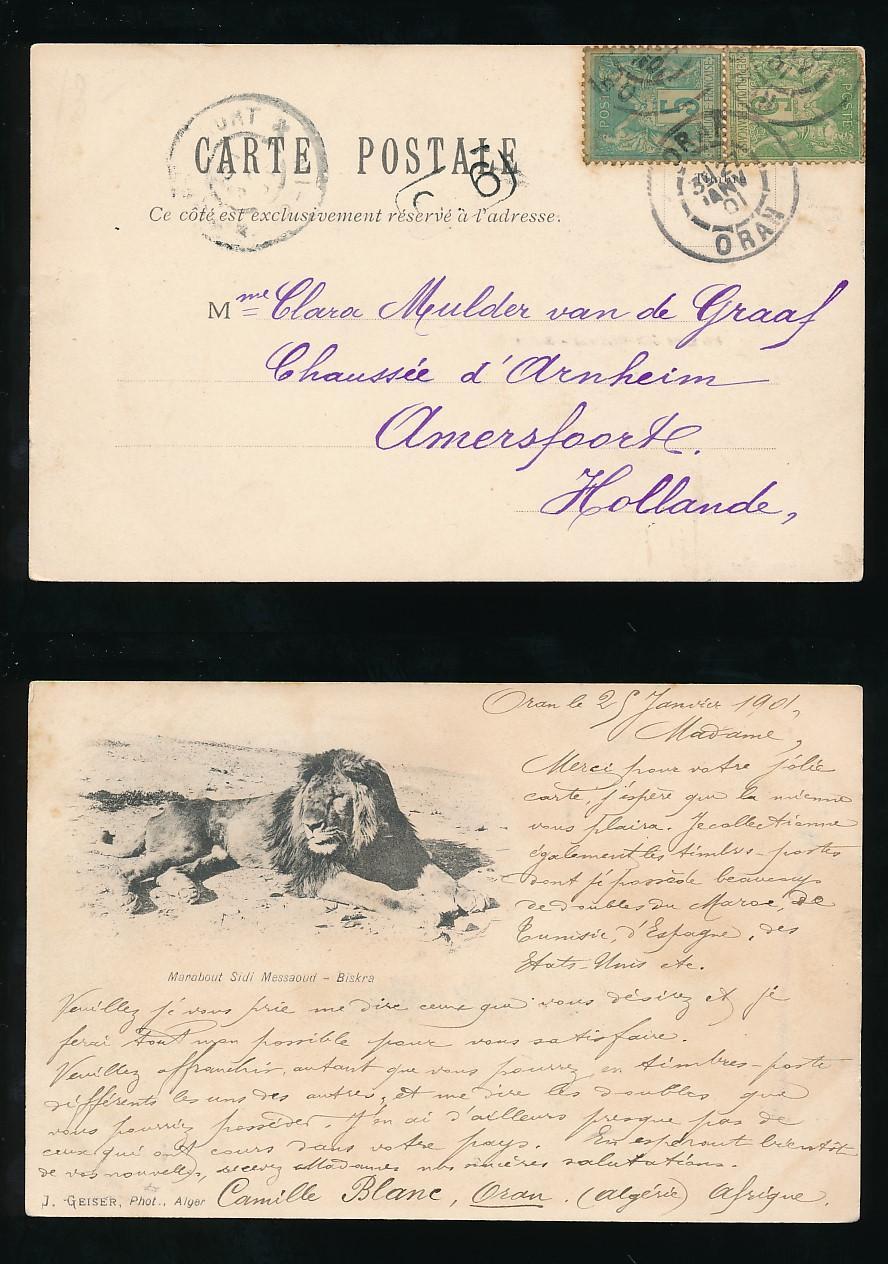 CARTE POSTALE
Ce côté est exclusivement réservé à l'adresse.
POSTE 5
5 POSTE
ORAN
JANV
01
ORAN
Mme Clara Mulder van de Graaf
Chaussée d'Arnheim
Amersfoort.
Hollande,
Oran le 25 Janvier 1901,
Madame,
Merci pour votre jolie
carte, j'espère que la mienne
vous plaira. Je collectionne
également les timbres-postes
dont je possède beaucoup
de doubles du Maroc, de
Tunisie, d'Espagne, des
Etats-Unis etc.
Marabout Sidi Messaoud - Biskra
Veuillez je vous prie me dire ceux que vous désirez et je
ferai tout mon possible pour vous satisfaire.
Veuillez affranchir, autant que vous pourrez en timbres-poste
différents les uns des autres, et me dire les doubles que
vous pourriez posséder. J'en ai d'ailleurs presque pas de
ceux qui ont cours dans votre pays. En espérant bientôt
de vos nouvelles, recevez Madame nos sincères salutations.
J. GEISER, Phot., Alger Camille Blanc, Oran. (Algérie) Afrique.